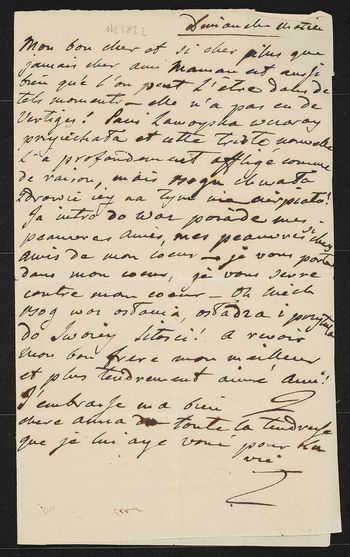 Dimanche matin
Mon bon cher et si cher plus que
jamais cher ami Maman est aussi
bien que l'on peut l'etre dans de
tels moments – elle n'a pas eu de
vertiges! Pani Zamoyska wczoray
przyiechała et cette triste nouvelle
l'a profondement affligé comme
de raison, mais Bogu chwała
zdrowie iey na tym nie cierpiało!
Ja iutro do was poiadę mes
peauvres amis, mes peauvres chers
amis de mon coeur – je vous porte
dans mon coeur, je vous serre
contre mon coeur – Oh niech
Bog was osłania, osładza i przytula
do Swoiey litosci! a revoir
mon bon frere mon meilleur
et plus tendrement aimé ami!
J'embrasse ma bien
chere anna de toute la tendresse
que je lui aye voué pour la
vie